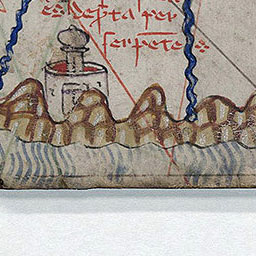 es depta per
serpēte